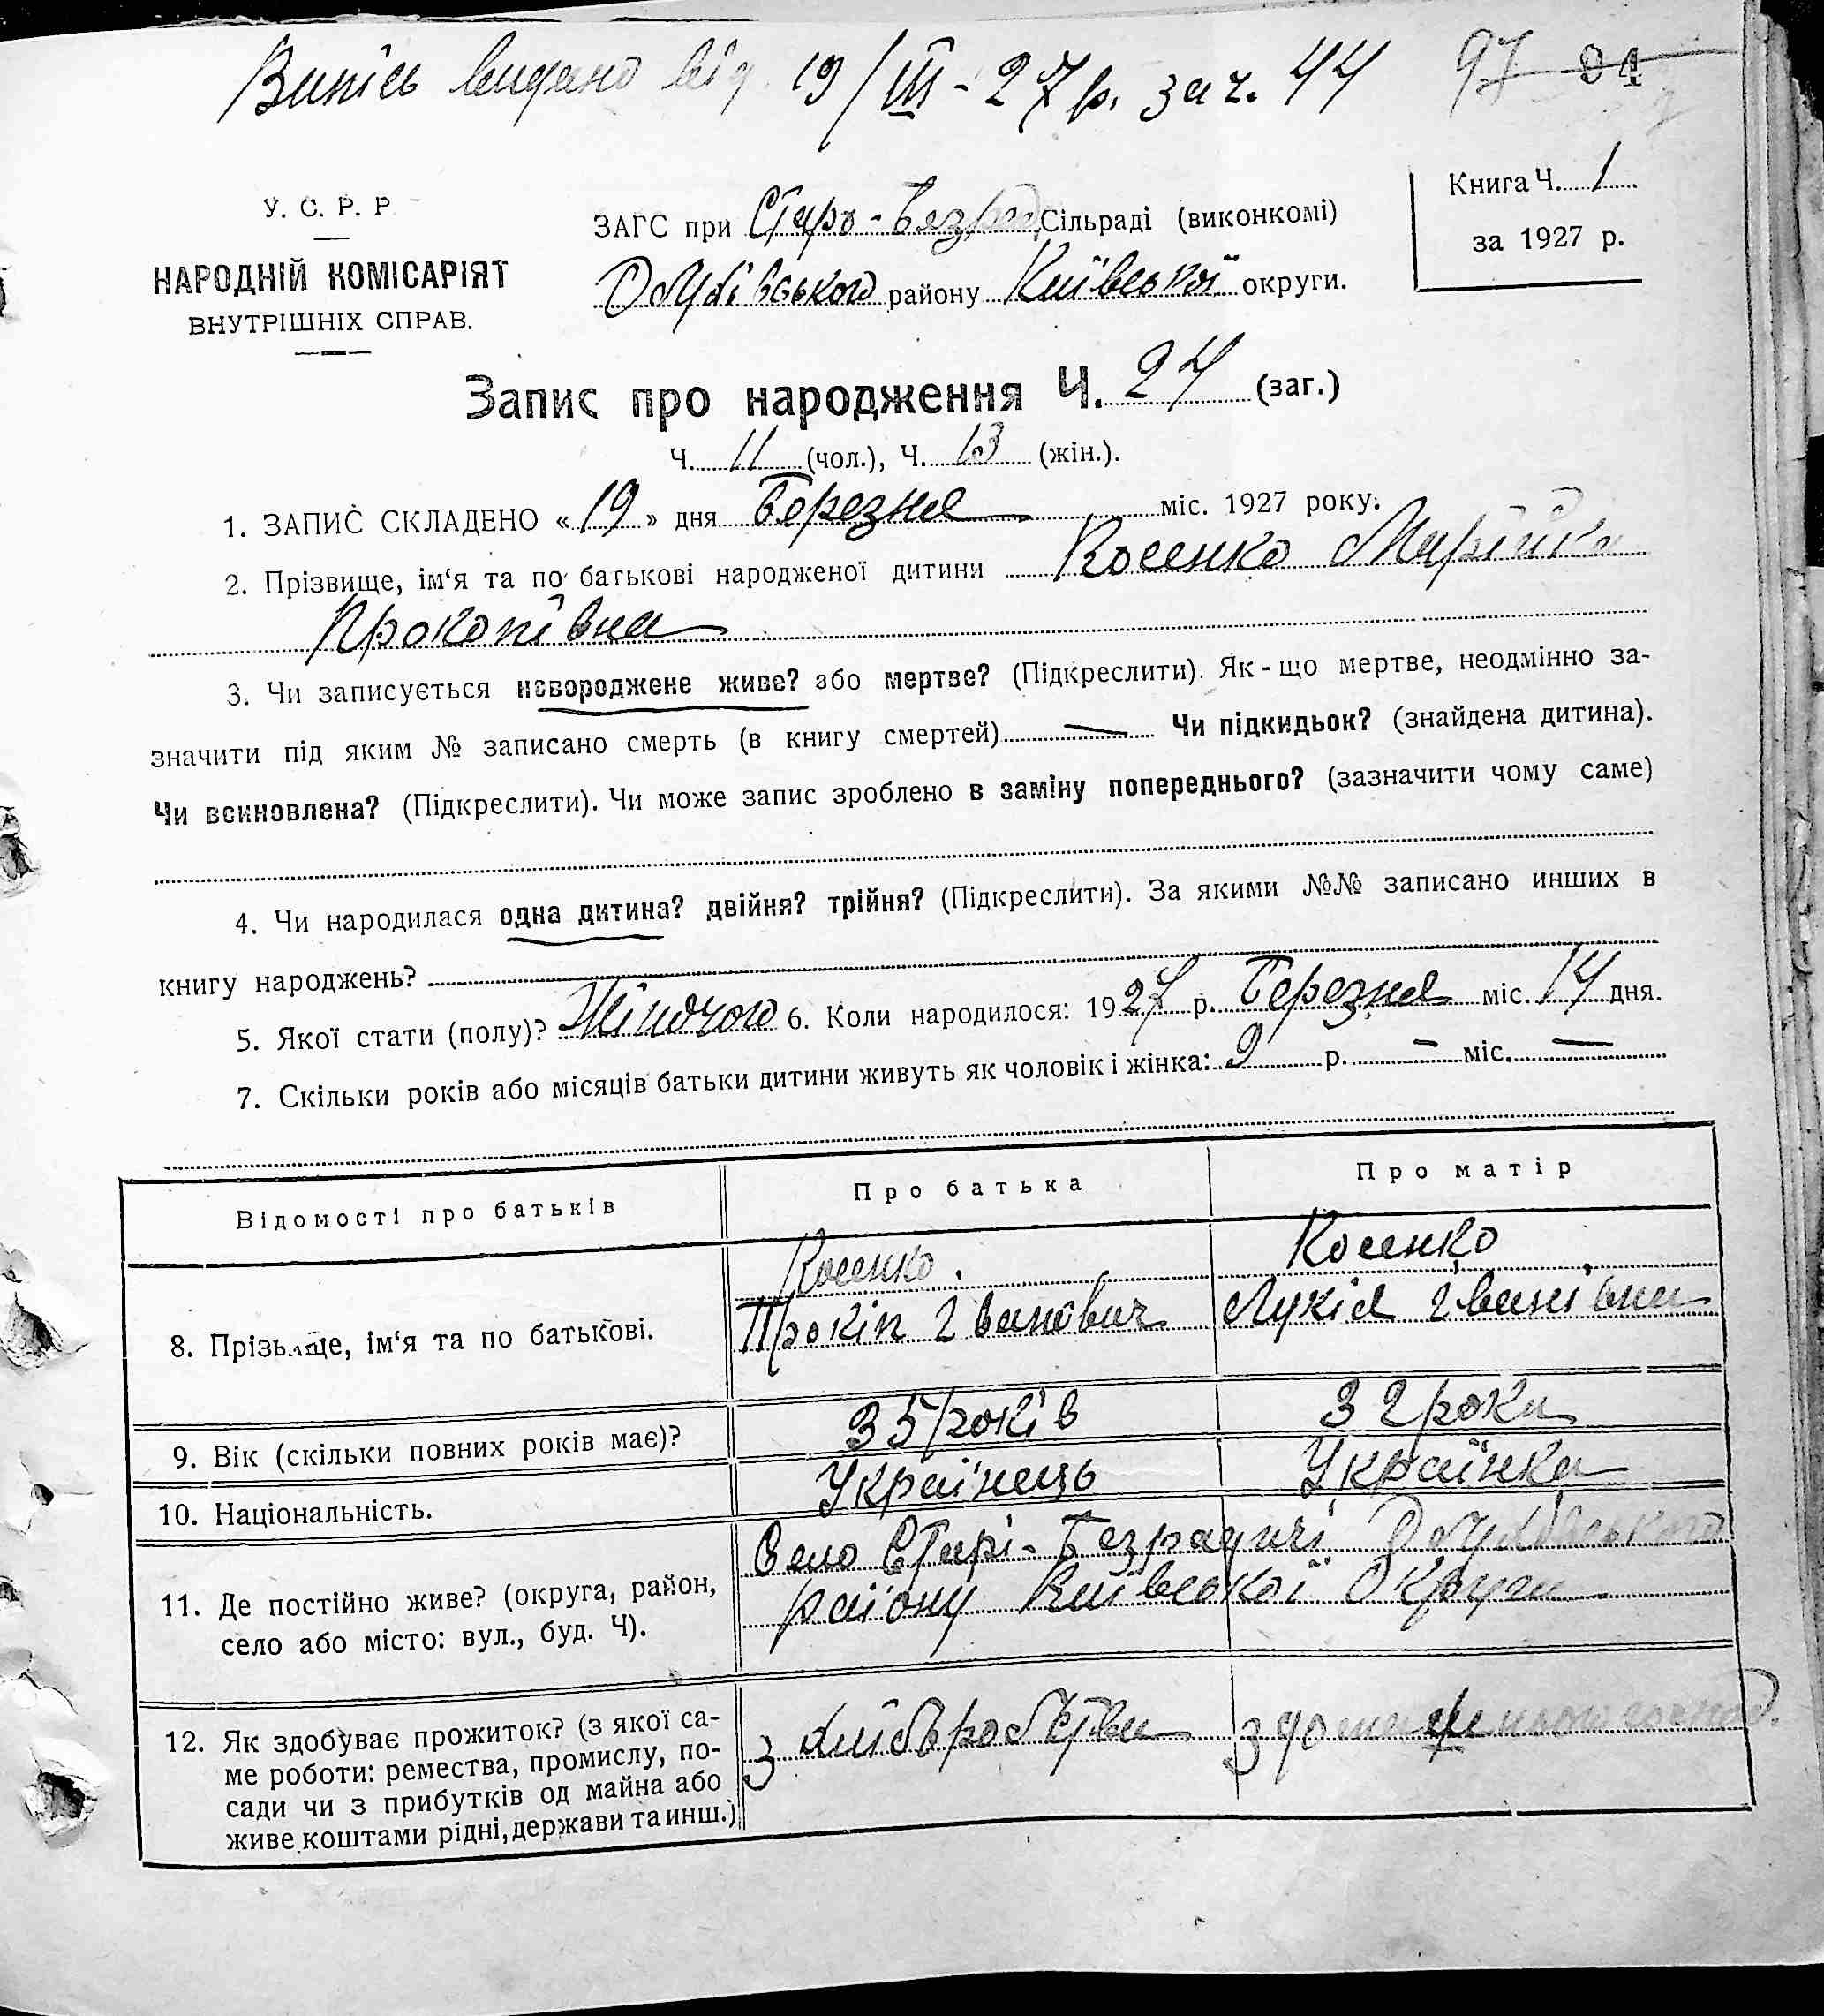 Випись видано від 19/III-27р. за ч. 44 97 94
У. С. Р. Р
НАРОДНІЙ КОМІСАРІЯТ
ВНУТРІШНІХ СПРАВ.
ЗАГС при Старо-Безрад. Сільраді (виконкомі)
Обухівського району Київської округи.
Книга Ч. 1
за 1927 р.
Запис про народження Ч. 24 (заг.)
Ч. 11 (чол.), Ч. 13 (жін.).
1. ЗАПИС СКЛАДЕНО «19» дня Березня міс. 1927 року.
2. Прізвище, ім‘я та по батькові народженої дитини Косенко Марійка
Прокопівна
3. Чи записується новороджене живе? або мертве? (Підкреслити). Як-що мертве, неодмінно за-
значити під яким № записано смерть (в книгу смертей) — Чи підкидьок? (знайдена дитина).
Чи всиновлена? (Підкреслити). Чи може запис зроблено в заміну попереднього? (зазначити чому саме)
4. Чи народилася одна дитина? двійня? трійня? (Підкреслити). За якими №№ записано инших в
книгу народжень?
5. Якої стати (полу)? Жіночого 6. Коли народилося: 1927 р. Березня міс. 14 дня.
7. Скільки років або місяців батьки дитини живуть як чоловік і жінка: 9 р. — міс. —
Відомості про батьків Про батька Про матір
Косенко. Косенко
8. Прізвище, ім‘я та по батькові. Прокіп Іванович Лукія Іванівна
9. Вік (скільки повних років має)? 35 років 32 роки
10. Національність. Українець Українка
Село Старі-Безрадичі Обухівського
11. Де постійно живе? (округа, район, району Київської Округи
село або місто: вул., буд. Ч).
12. Як здобуває прожиток? (з якої са- з хліборобства з домашнього господ.
ме роботи: ремества, промислу, по-
сади чи з прибутків од майна або
живе коштами рідні, держави та инш.)